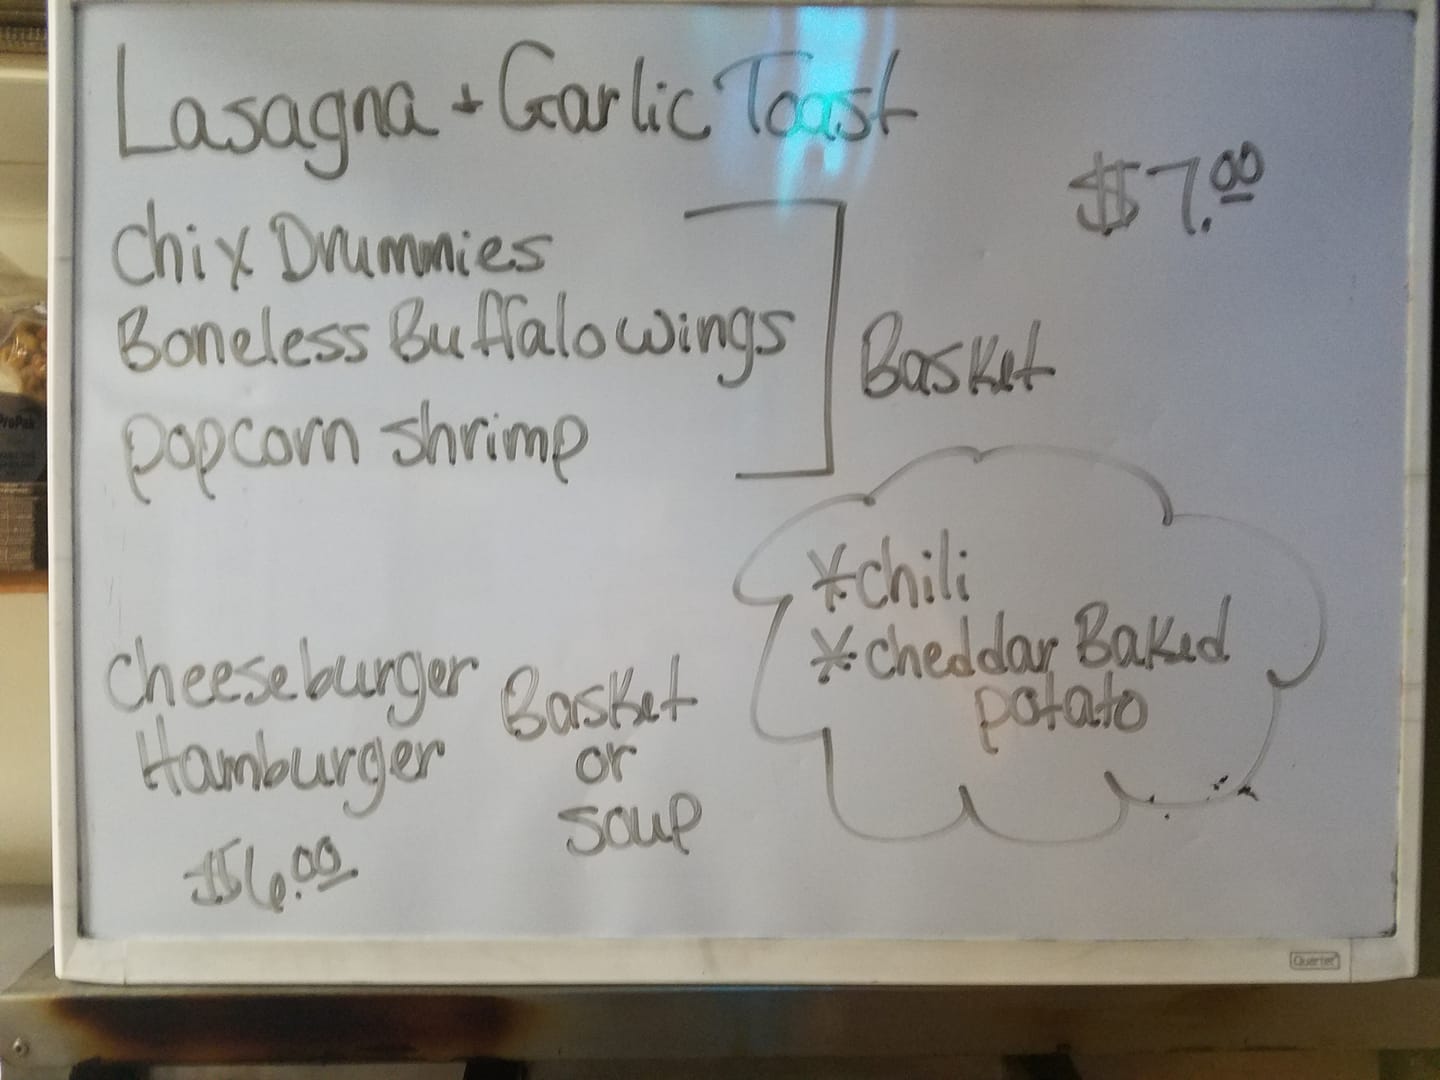 Lasagna + Garlic Toast
$7.00
Chix Drummies
Boneless Buffalo wings
Basket
popcorn shrimp
*chili
*cheddar Baked
potato
Cheeseburger
Hamburger
Basket
or
soup
$6.00
Quartet
ProPak